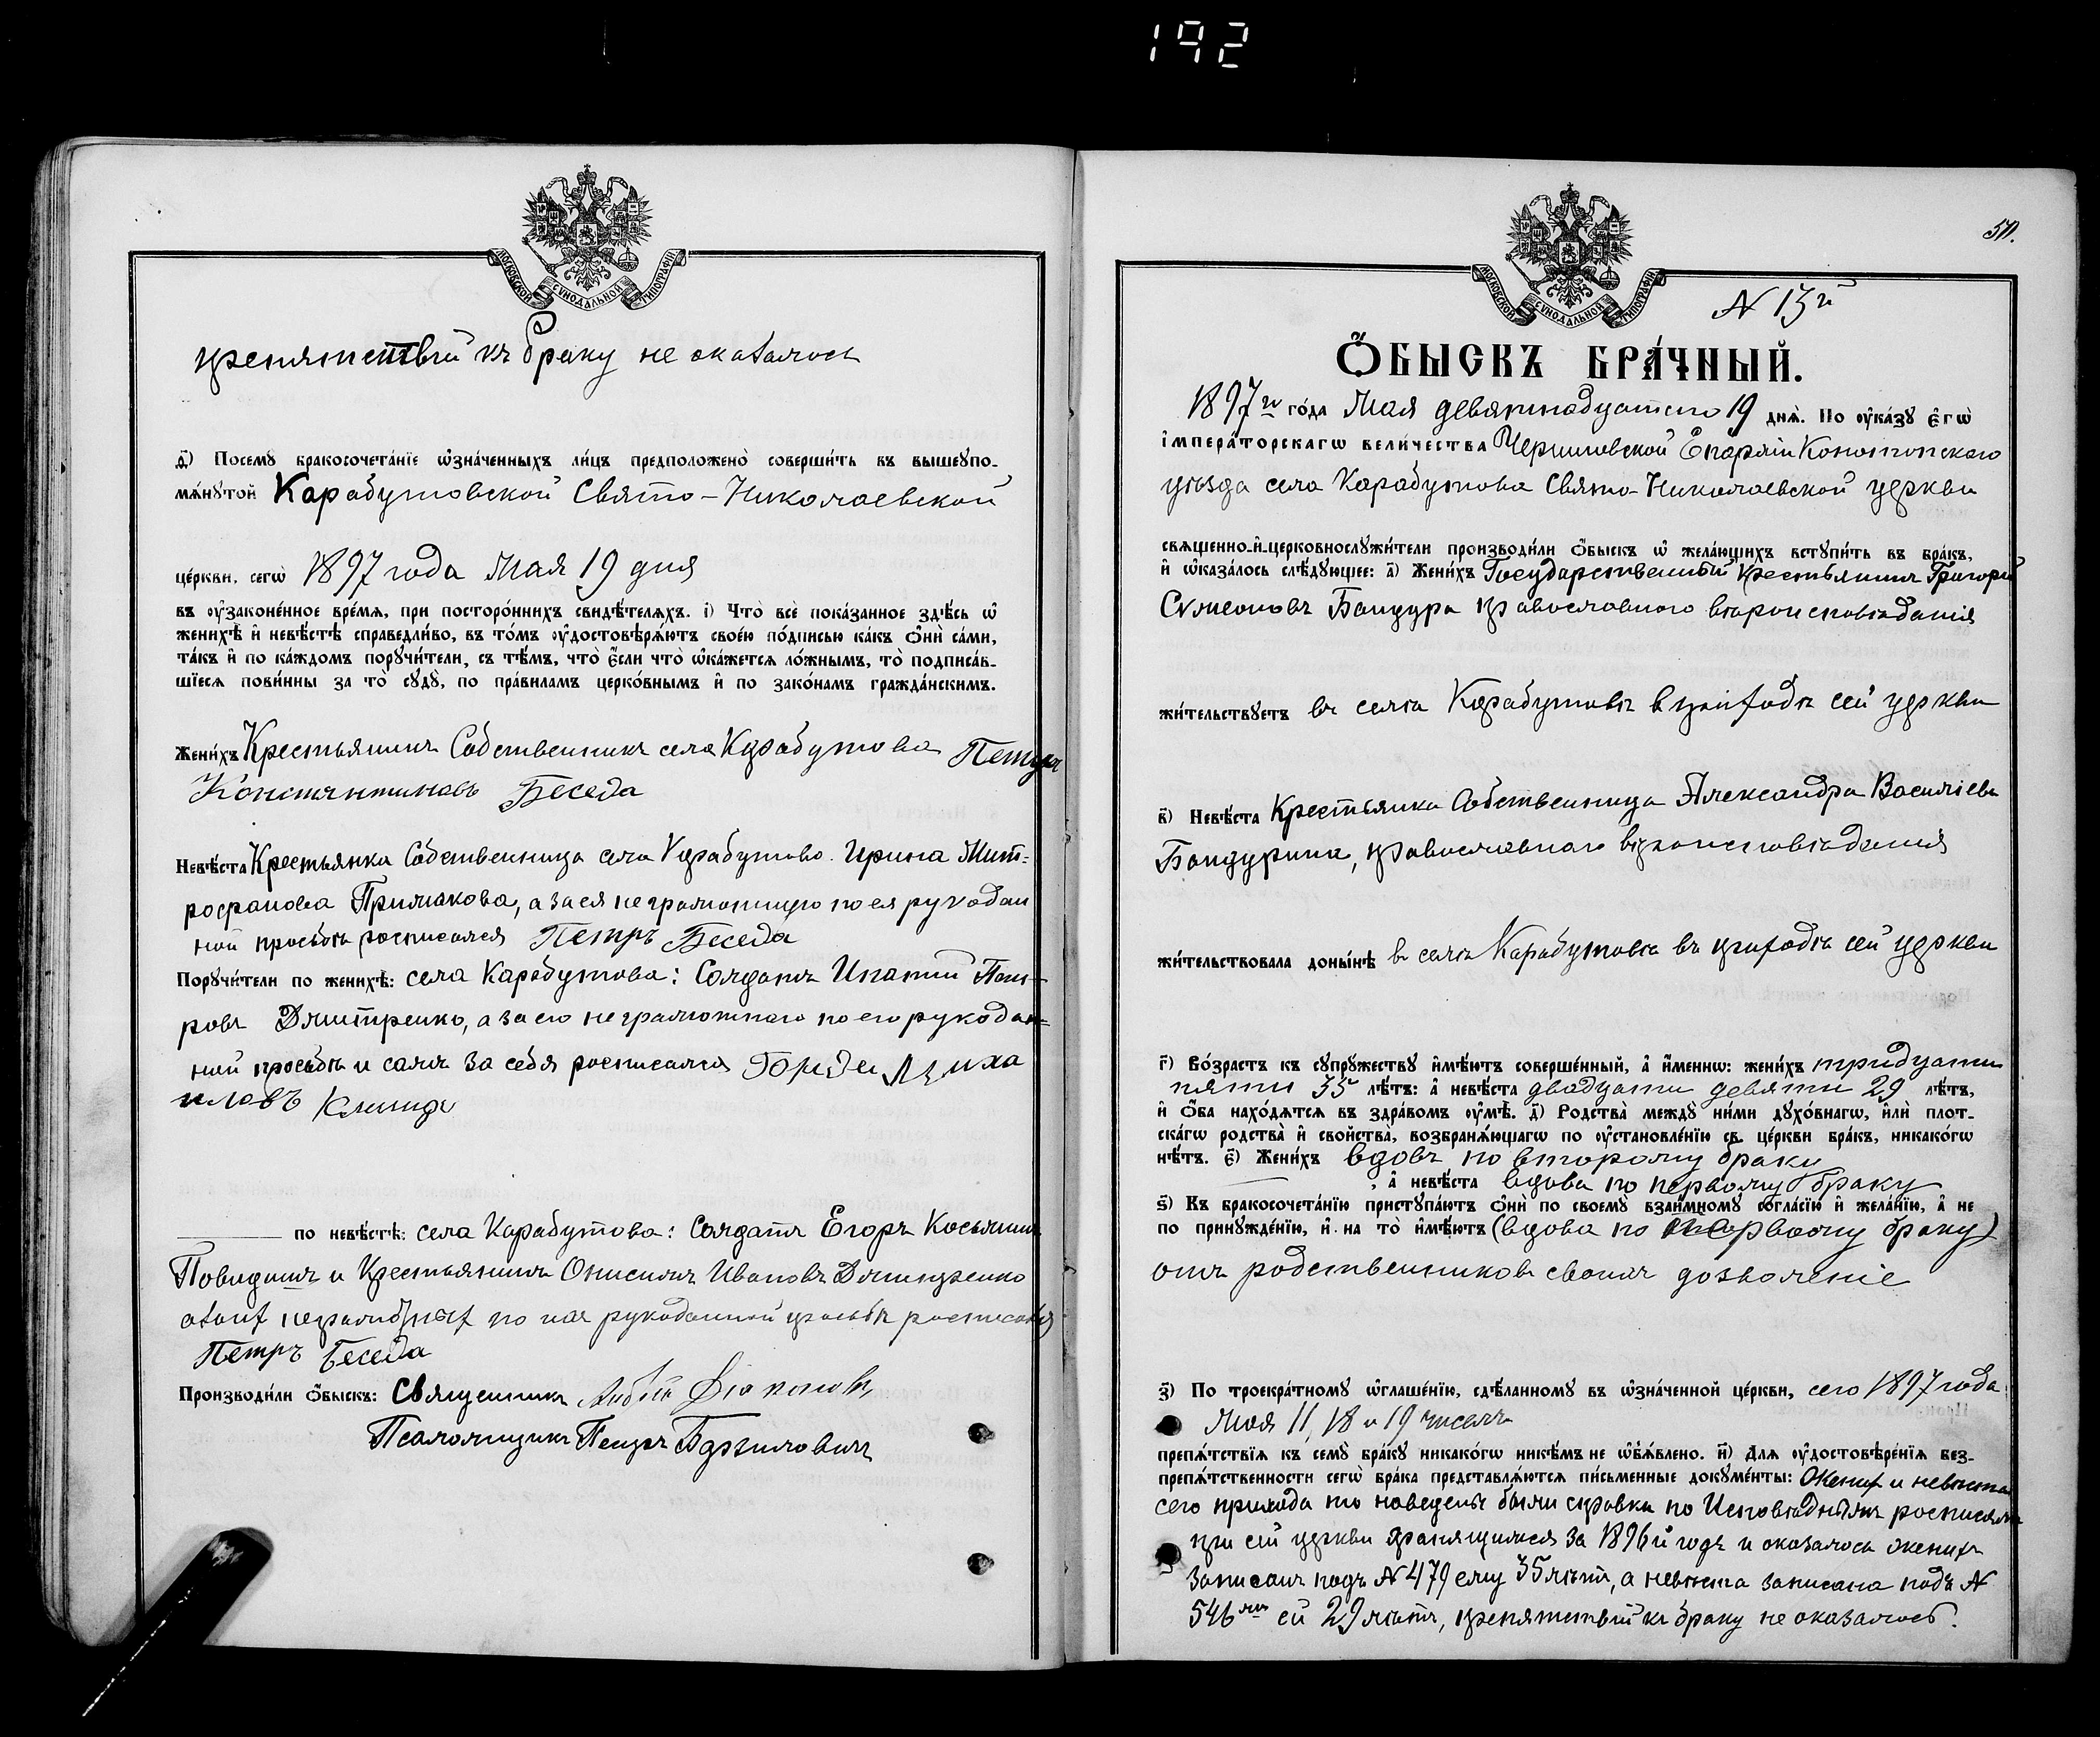 192
МОСКОВСКОЙ СѴНОДАЛЬНОЙ ТИПОГРАФІИ
препятствий къ браку не оказалось
д҃) Посемꙋ̀ бракосочета́нїе ѡ҆зна́ченныхъ ли́цъ предположено̀ соверши́ть въ вышеꙋпо-
мѧ́нꙋтой Карабутовской Свято-Николаевской
це́ркви, сегѡ̀ 1897 года Мая 19 дня
въ ᲂу҆зако́ненное вре́мѧ, при посторо́ннихъ свидѣ́телѧхъ. і҃) Что̀ всѐ пока́занное здѣ́сь ѡ҆
женихѣ̀ и҆ невѣ́стѣ справедли́во, въ то́мъ ᲂу҆достовѣрѧ́ютъ свое́ю по́дписью ка́къ ѻ҆нѝ са́ми,
та́къ и҆ по ка́ждомъ порꙋчи́тели, съ тѣ́мъ, что̀ є҆́сли что̀ ѡ҆ка́жетсѧ ло́жнымъ, то̀ подписа́в-
шїесѧ пови́нны за то̀ сꙋдꙋ̀, по пра́виламъ церко́внымъ и҆ по зако́намъ гражда́нскимъ.
Жени́хъ Крестьянинъ Собственникъ села Карабутова Петръ
Константиновъ Беседа
Невѣ́ста Крестьянка Собственница села Карабутова Ирина Мит-
рофанова Примакова, а за ея неграмотную по ея рукодан
ной просьбѣ росписался Петръ Беседа
Порꙋчи́тели по женихѣ̀: села Карабутова: Солдатъ Ипатий Пет-
ровъ Дмитренко, а за его неграмотнаго по его рукодан-
ной просьбѣ и самъ за себя росписался Гордей Миха
иловъ
по невѣ́стѣ: села Карабутова: Солдатъ Егоръ Косьминъ
и Крестьянинъ Онисимъ Ивановъ Дмитренко
а за их неграмотных по их рукоданной просьбѣ росписался
Петръ Беседа
Производи́ли ѻ҆́быскъ: Священникъ
Псаломщикъ Петръ
50.
МОСКОВСКОЙ СѴНОДАЛЬНОЙ ТИПОГРАФІИ
N 13й
Ѻ҆́БЫСКЪ БРА́ЧНЫЙ.
1897го го́да Мая девятнадцатого 19 днѧ̀. По ᲂу҆ка́зꙋ є҆гѡ̀
і҆мпера́торскагѡ вели́чества Черниговской Епархіи Конотопскаго
уѣзда села Карабутова Свято-Николаевской церкви
свѧще́нно-и҆-церковнослꙋжи́тели производи́ли ѻ҆́быскъ ѡ҆ жела́ющихъ встꙋпи́ть въ бра́къ,
и҆ ѡ҆каза́лось слѣ́дꙋющее: а҃) Жени́хъ Государственный Крестьянинъ Григорій
Сумеоновъ Бандура православного вѣроисповѣданія
жи́тельствꙋетъ въ селѣ Карабутовѣ в приходѣ сей церкви
в҃) Невѣ́ста Крестьянка Собственница Александра Василіева
Бандурина, православнаго вѣроисповѣданія
жи́тельствовала доны́нѣ в селѣ Карабутовѣ въ приходѣ сей церкви
г҃) Во́зрастъ къ сꙋпрꙋ́жествꙋ и҆мѣ́ютъ соверше́нный, а҆ и҆́меннѡ: жени́хъ тридцати
пяти 35 лѣ́тъ: а҆ невѣ́ста двадцати девяти 29 лѣ́тъ,
и҆ ѻ҆́ба нахо́дѧтсѧ въ здра́вомъ ᲂу҆мѣ̀. д҃) Родства̀ междꙋ̀ ни́ми дꙋхо́внагѡ, и҆лѝ плот-
ска́гѡ родства̀ и҆ сво́йства, возбранѧ́ющагѡ по ᲂу҆становле́нїю св. це́ркви бра́къ, никако́гѡ
нѣ́тъ. є҃) Жени́хъ вдовъ по второму браку
, а҆ невѣ́ста вдова по первому браку
ѕ҃) Къ бракосочета́нїю пристꙋпа́ютъ ѻ҆нѝ по своемꙋ̀ взаи́мномꙋ согла́сїю и҆ жела́нїю, а҆ не
по принꙋжде́нїю, и҆ на то̀ и҆мѣ́ютъ (вдова по первому браку)
отъ родственниковъ своихъ дозволеніе
з҃) По троекра́тномꙋ ѡ҆глаше́нїю, сдѣ́ланномꙋ въ ѡ҆зна́ченной це́ркви, сего 1897 года
Мая 11, 18 и 19 чиселъ
препѧ́тствїѧ къ семꙋ̀ бра́кꙋ никако́гѡ никѣ́мъ не ѡ҆б̾ѧ́влено. и҃) Длѧ ᲂу҆достовѣре́нїѧ без-
препѧ́тственности сегѡ̀ бра́ка представлѧ́ютсѧ пи́сьменные докꙋме́нты: Жених и невѣста
сего прихода то наведены были справки по Исповѣднымъ росписямъ
при сей церкви хранящимся за 1896й годъ и оказалось женихъ
записанъ подъ N 479 ему 35 лѣтъ, а невѣста записана подъ N
546мъ ей 29 лѣтъ, препятствій къ браку не оказалось.